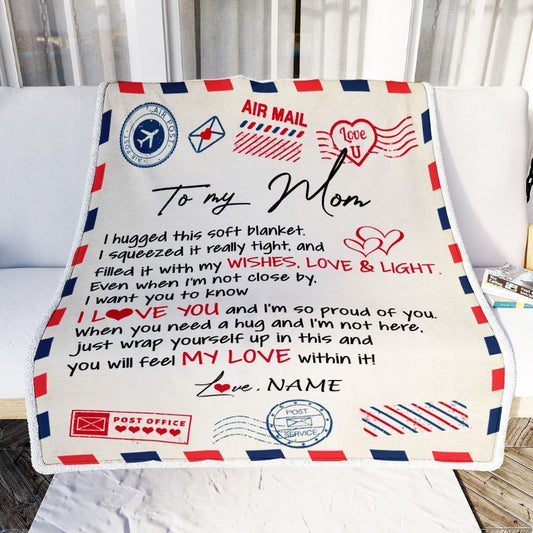 AIR POST
AIR POST
AIR MAIL
Love
U
To my Mom
I hugged this soft blanket.
I squeezed it really tight, and
filled it with my WISHES, LOVE & LIGHT.
Even when I'm not close by,
I want you to know
I L❤VE YOU and I'm so proud of you.
When you need a hug and I'm not here,
just wrap yourself up in this and
you will feel MY LOVE within it!
L❤ve, NAME
POST OFFICE
POST
SERVICE